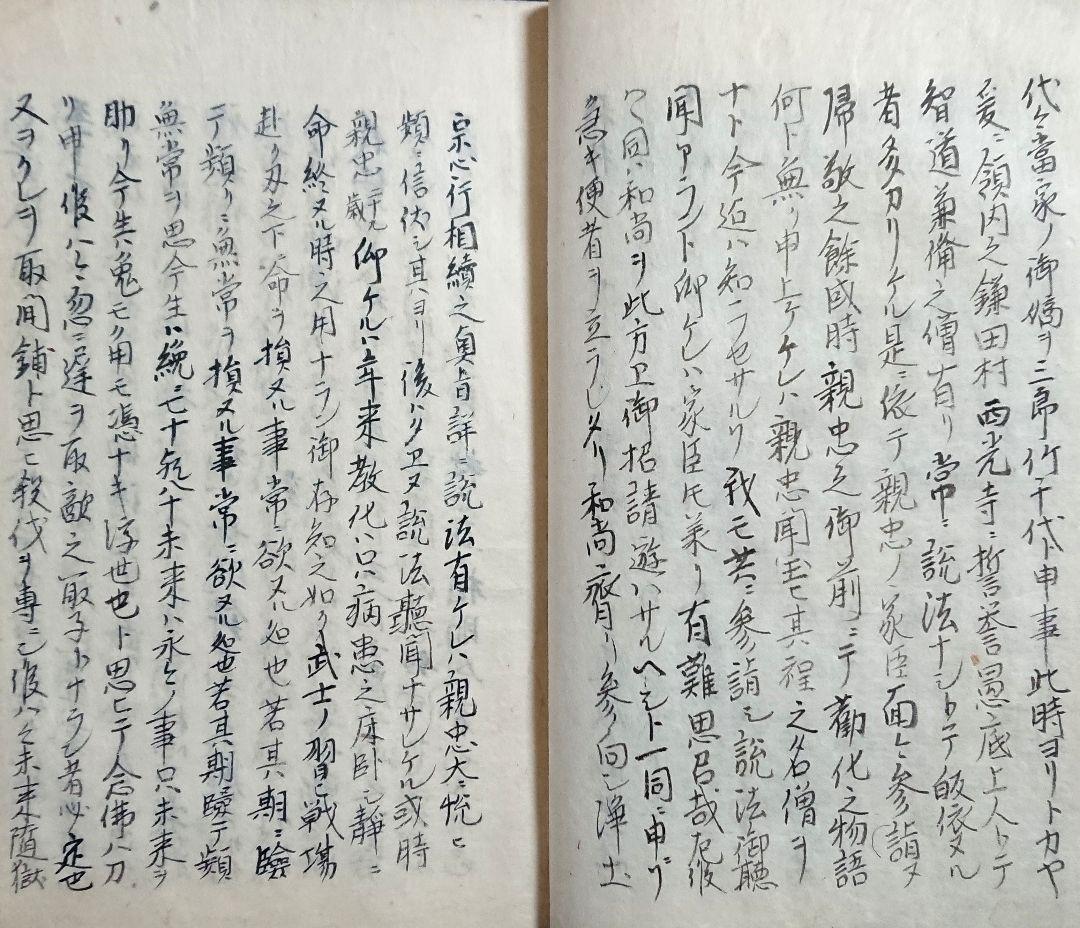 代々當家ノ御嫡ヲ三郎竹千代ト申事此時ヨリトカヤ
爰ニ領内之鎌田村西光寺ニ誓誉愚底上人トテ
智道兼備之僧有リ常ニ説法ナシトテ皈依スル
者多カリケル是ニ依テ親忠ノ家臣面々参詣シ
帰敬之餘或時親忠之御前ニテ勸化之物語
何ト無ク申上ケケレハ親忠聞玉ヒ其程之名僧ヲ
ナト今迠ハ知ラセサルソ我モ共ニ参詣シ説法御聽
聞アラント仰ケレハ家臣氏美リ有難思召哉左候
ハヽ同ハ和尚ヲ此方エ御招請遊ハサルヘシト一同ニ申ニソ
急キ使者ヲ立ラレケリ和尚齋リ参ノ向シ浄土
宗心行相續之奥旨詳ニ説法有ケレハ親忠大ニ悦ヒ
頻ニ信伏シ其ヨリ後ハタエス説法聽聞ナサレケル或時
親忠 仰ケルハ年来教化ハ只ハ病患之床臥シ靜ニ
命終スル時之用ナラン御存知之如ク武士ノ習ヒ戦場
赴ク刄之下ニ命ヲ損スル事常ニ欲スル処也若其期ニ臨
テ頻リニ無常ヲ損スル事常ニ欲スル処也若其期臨テ頻
無常ヲ思今生ハ纔ニ七十気八十未来ハ永々ノ事只未来ヲ
助リ今共鬼モク用モ憑ナキ浮世也ト思ヒテ念佛ハ刀
リ申候ハヽ忽ニ遅ヲ取敵之取子トナラン者必定也
又ヲクレヲ取間鋪ト思ヒ殺伐ヲ専ニシ候ハヽ未来随獄